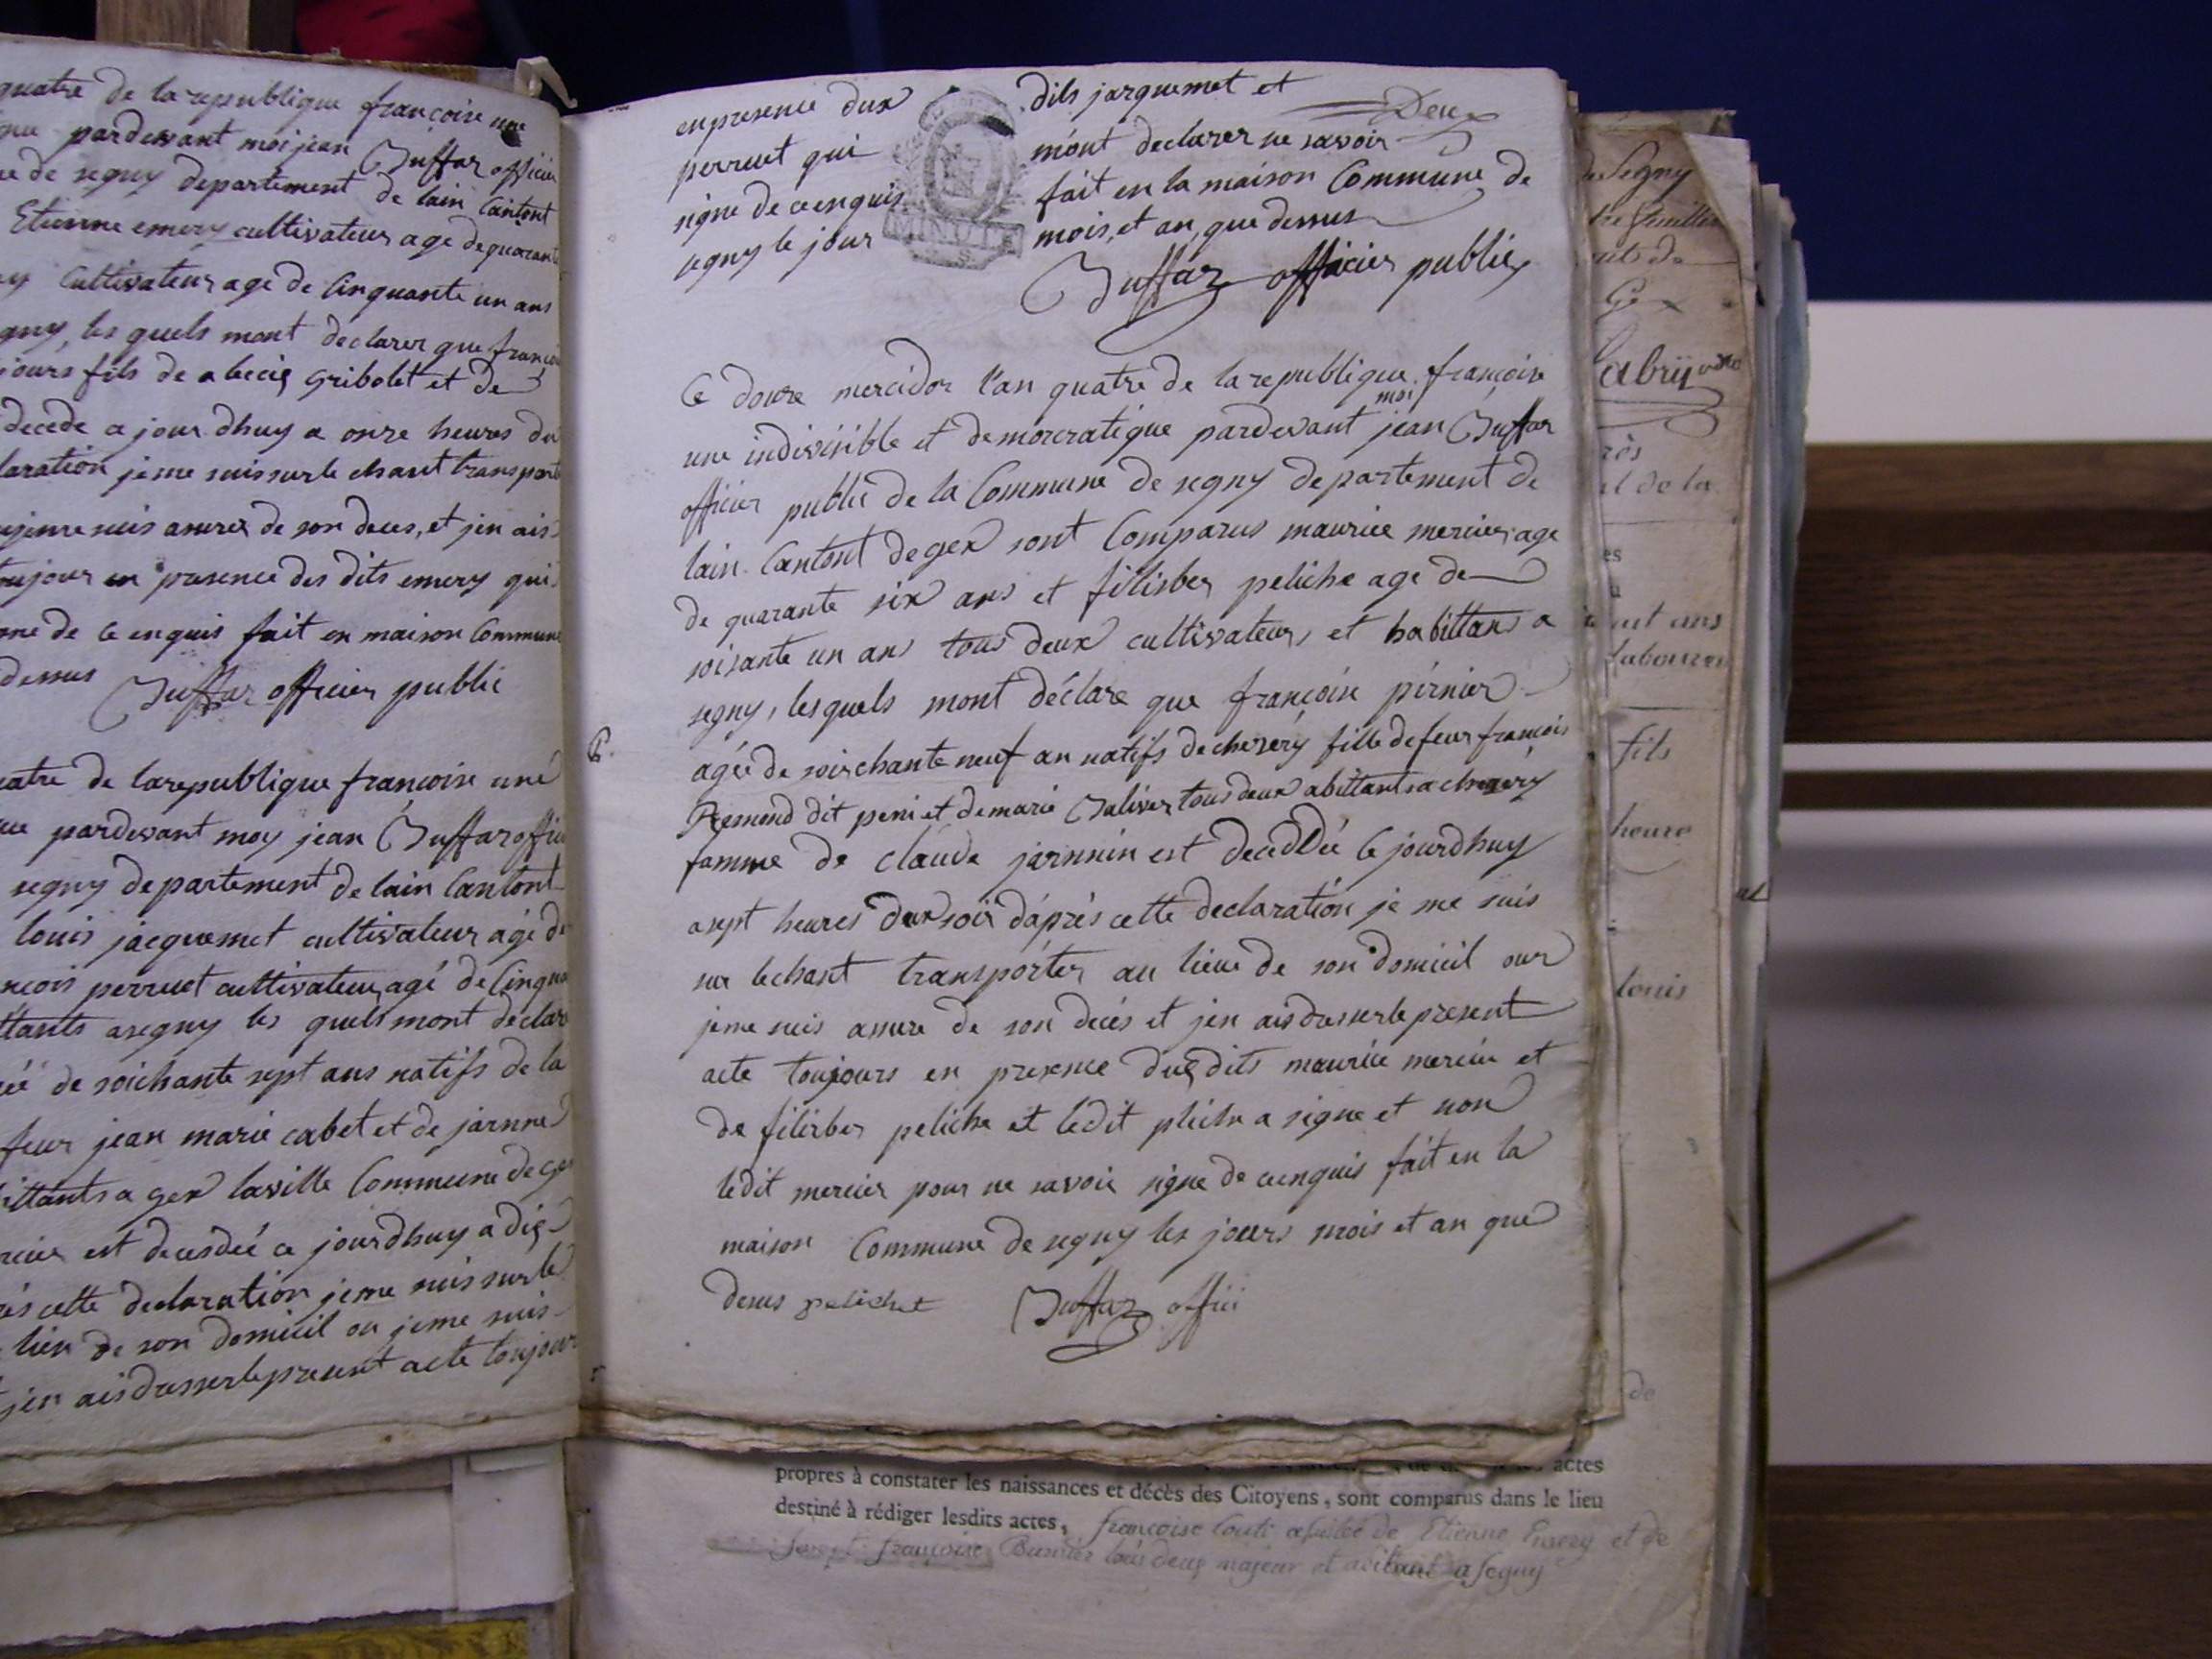 quatre de la republique françoise une
pardevant moi jean Buffar officier
de segny departement de lain Cantont
Etienne emery cultivateur age de quarant
Cultivateur age de Cinquante un ans
gny, les quels mont declarer que françoi
jours fils de alecis Gribolet et de
decede a jour dhuy a onze heures du
laration jeme suis sur le chant transport
jeme suis asurer de son deces, et jen ais
toujour en presence des dits emery qui
ne de ce enquis fait en maison Commune
dessus Buffar officier public
atre de larepublique françoise une
pardevant moy jean Buffar offici
segny departement de lain Cantont
louis jacquemet cultivateur agé de
nçois perruet cultivateur agé de Cinqua
ttants a segny les quels mont déclare
eé de soichante sept ans natifs de la
feur jean marie cabet et de jarnne
ittants a gex laville Commune de gex
est decedeé ce jourdhuy a dig
és cette declaration jeme suis sur le
lieu de son domicil ou jeme suis
jen ais dresser le present acte toujour
en presence dux dits jarquemet et
Deux
perruet qui mónt declarer ne savoir
signe de ce enquis fait en la maison Commune de
segny le jour mois, et an, que dessus
MINUTE
Buffar officier public
Ce douze mercidor l'an quatre de la republique françoise
une indivisible et democratique pardevant moi jean Buffar
officier public de la Commune de segny departement de
lain Cantont de gex sont Comparus maurice mercier age
de quarante six ans et filisber peliche age de
soisante un ans tous deux cultivateurs et habittans a
segny, lesquels mont déclare que françoise pérnier
6.
agée de soirchante neuf an natifs de cheséry fille de feur françois
Remond dit peni et de marie Baliver tous deux abittant a cheséry
famme de claude jarnnin est deceddée ce jourdhuy
a sept heures dux soir dáprés cette declaration je me suis
sur le chant transpórter au lieu de son domicil our
jeme suis assure de son decés et jen ais dresser le present
acte toujours en presence dus dits maurice mercier et
de filisber peliche et ledit plichr a signe et non
ledit mercier pour ne savoir signe de ce enquis fait en la
maison Commune de segny les jours mois et an que
desus pelichet Buffar offici
propres à constater les naissances et décès des Citoyens, sont comparus dans le lieu
destiné à rédiger lesdits actes, françoise de Etienne Emery et de
françoise tous deux majeur et abitant a segny
de Segny
fils
heure
louis
de